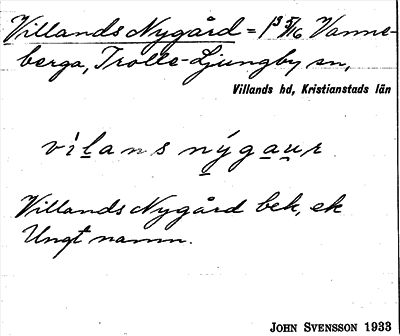 Villands Nygård = 1³ 5/16 Vanne-
berga, Trolle-Ljungby sn,
Villands hd, Kristianstads län
vìlans nýgaur
Villands Nygård bek, ek
Ungt namn.
JOHN SVENSSON 1933